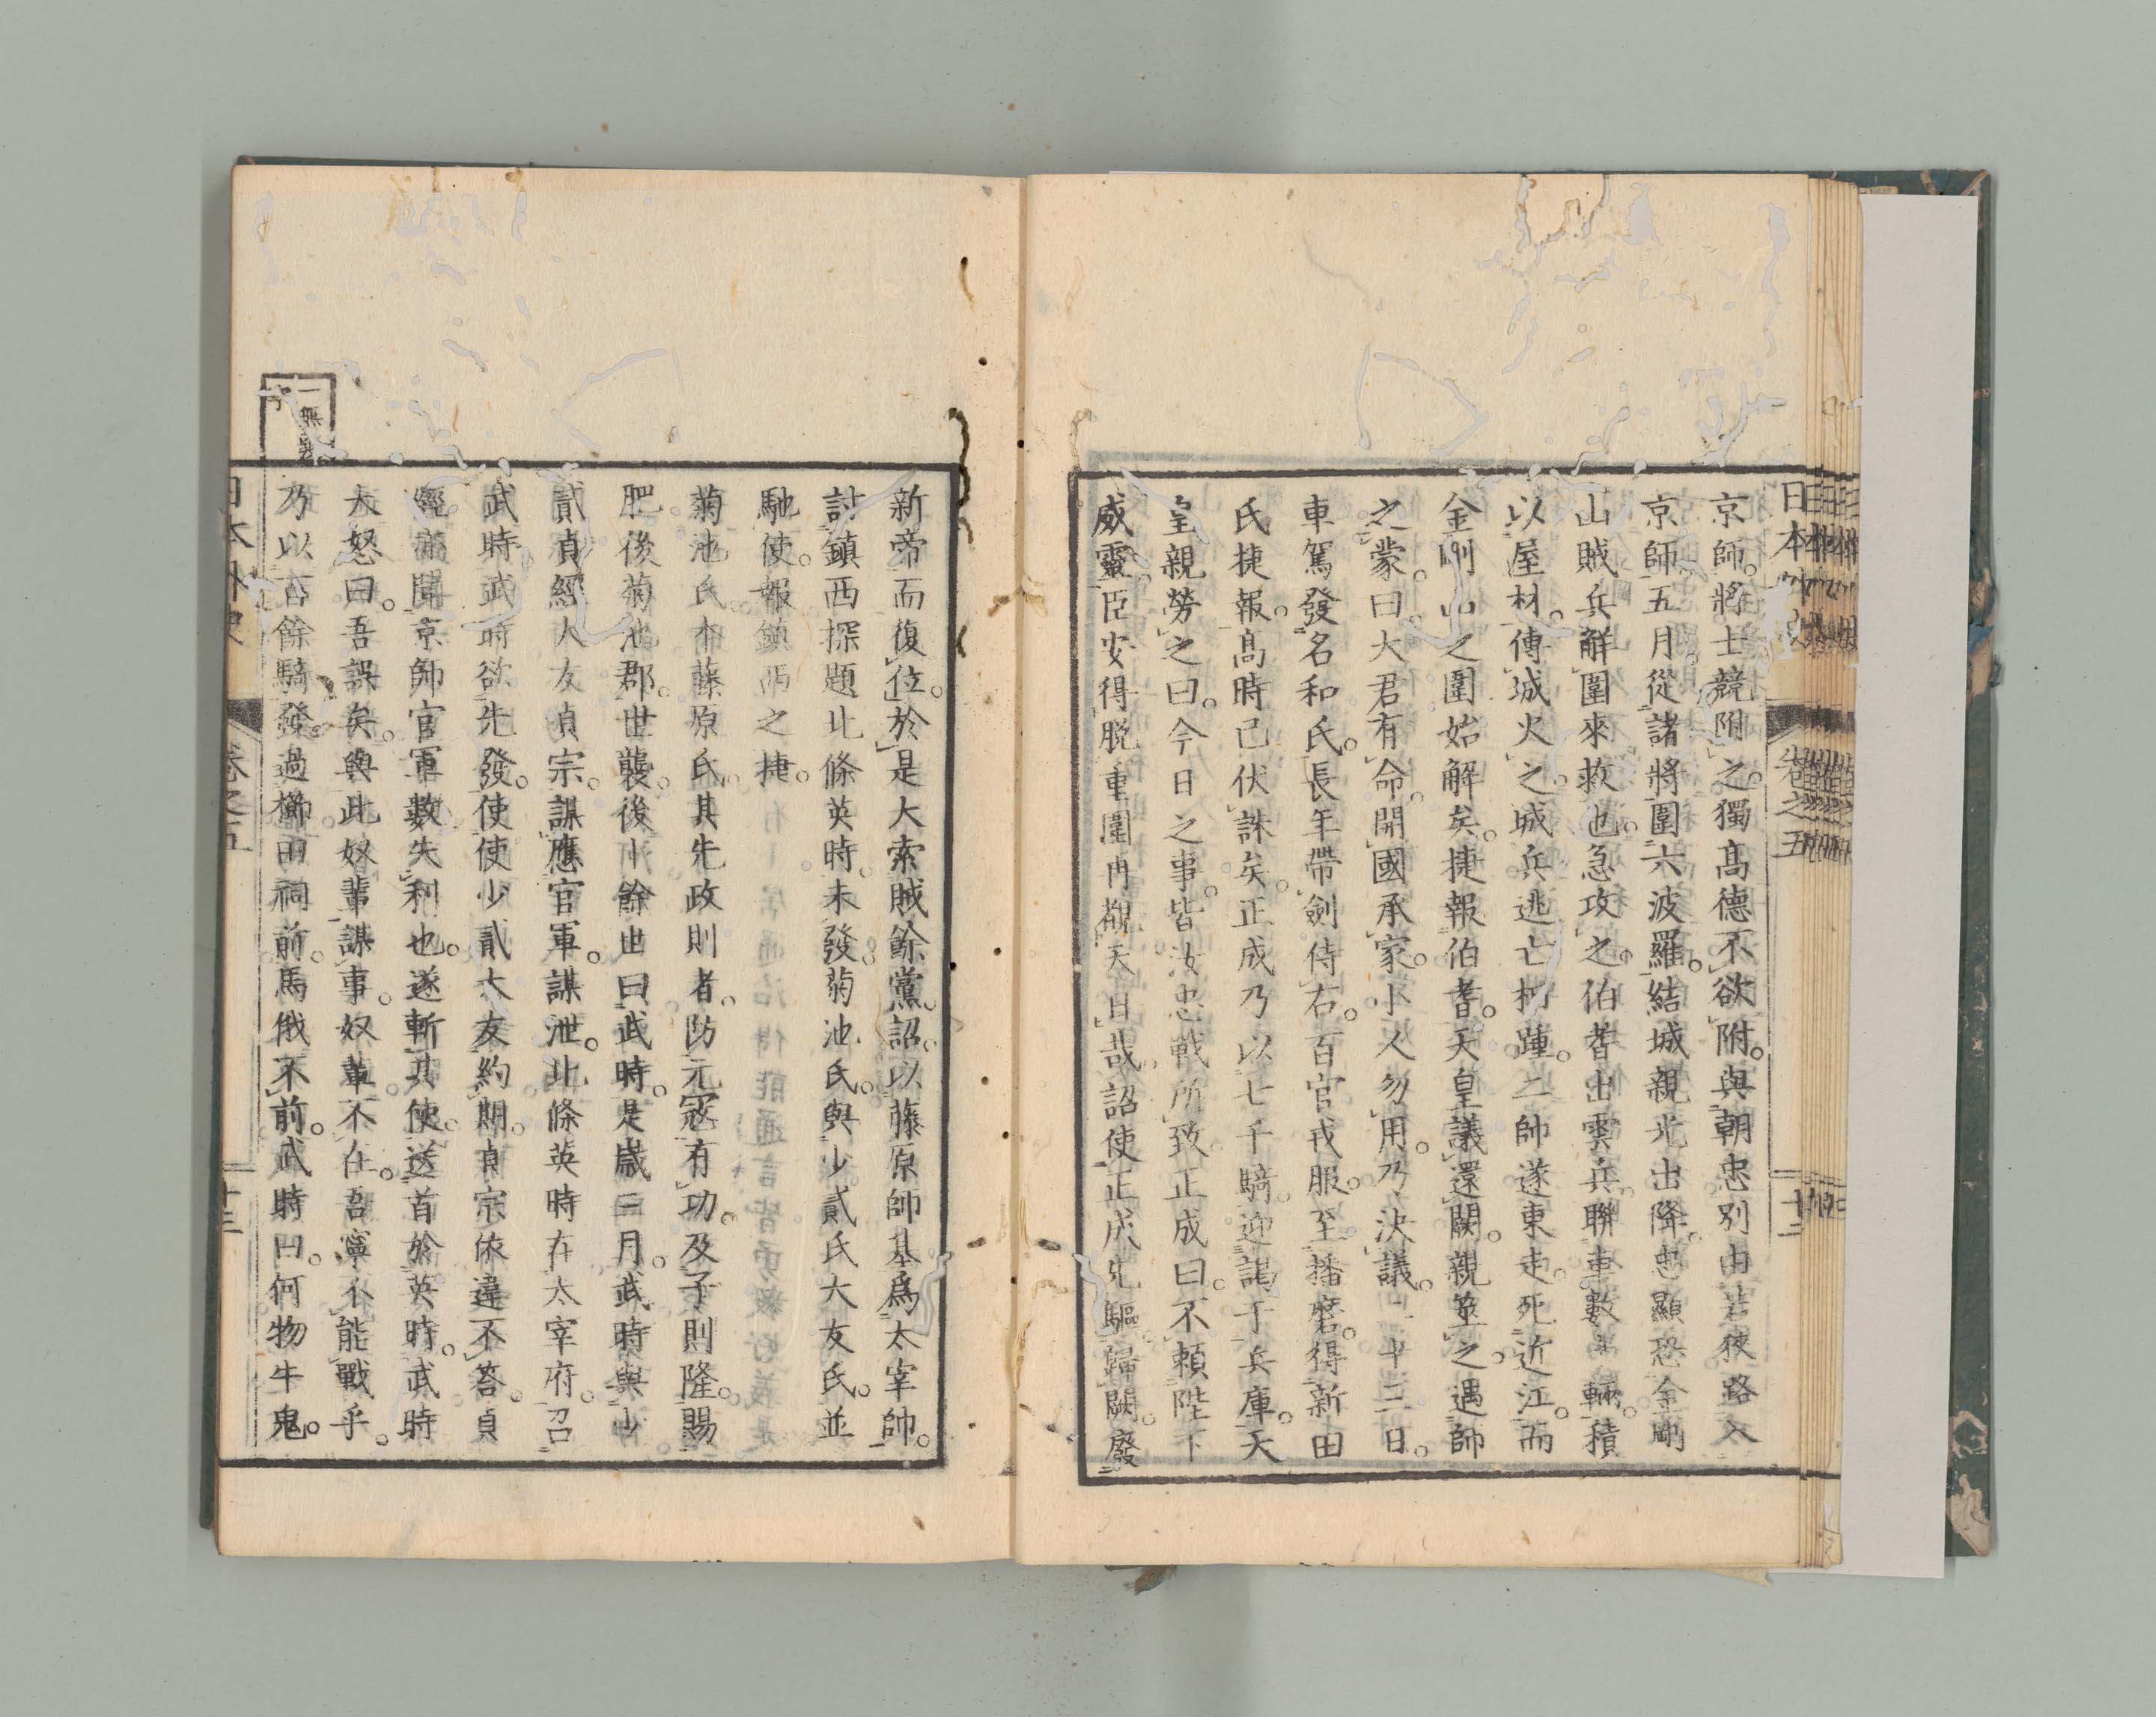 日本外史 卷之五 十二
京師。將士競附之。獨高德不欲附。與朝忠別由若狹路入
京師。五月從諸將圍六波羅。結城親光出降。忠顯恐金剛
山賊兵解圍來救也。急攻之。伯耆出雲兵。聯車數輛。積
以屋材。傳城火之。城兵逃亡相踵。二帥遂東走。死近江。而
金剛山之圍始解矣。捷報伯耆。天皇議還闕。親筮之。遇師
之蒙。曰大君有命。開國承家。小人勿用。乃決議。二十三日。
車駕發名和氏。長年帶劍侍右。百官戎服。至播磨。得新田
氏捷報。高時已伏誅矣。正成乃以七千騎。迎謁于兵庫。天
皇親勞之曰。今日之事。皆汝忠戰所致。正成曰。不賴陛下
威靈。臣安得脫重圍冉觀天日哉。詔使正成先驅歸闕。廢
新帝而復位。於是大索賊餘黨。詔以藤原師基爲太宰帥。
討鎮西探題北條英時。未發。菊池氏。與少貳氏大友氏。並
馳使。報鎮西之捷。
菊池氏本藤原氏。其先政則者。防元寇有功。及子則隆。賜
肥後菊池郡。世襲。後十餘世曰武時。是歲三月。武時與少
貳貞經大友貞宗。謀應官軍。謀泄。北條英時在太宰府。召
武時。武時欲先發。使使少貳大友約期。貞宗依違不答。貞
經 聞京師官軍數失利也。遂斬其使。送首於英時。武時
大怒曰。吾誤矣。與此奴輩謀事。奴輩不在。吾寧不能戰乎。
乃以百餘騎發過櫛田祠前。馬俄不前。武時曰。何物牛鬼。
一無
日本外史 卷之五 十三